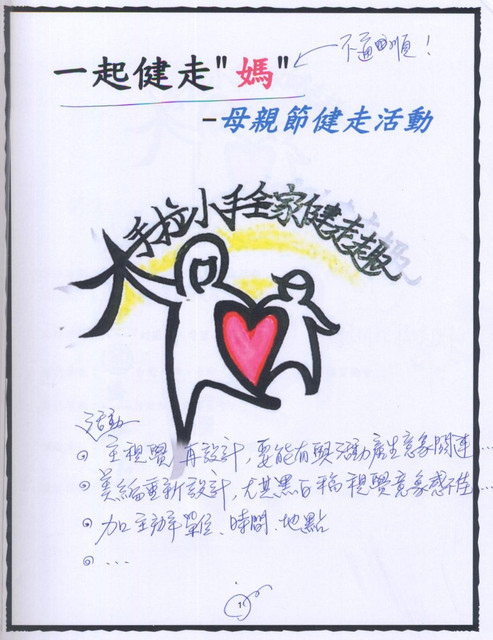 一起健走"媽"
不通順！
-母親節健走活動
大手拉小手全家健走趣
活動
主視覺再設計，要能有與活動產生意象關連...
美編重新設計，尤其黑白稿視覺意象感不佳...
加主辦單位、時間、地點
...